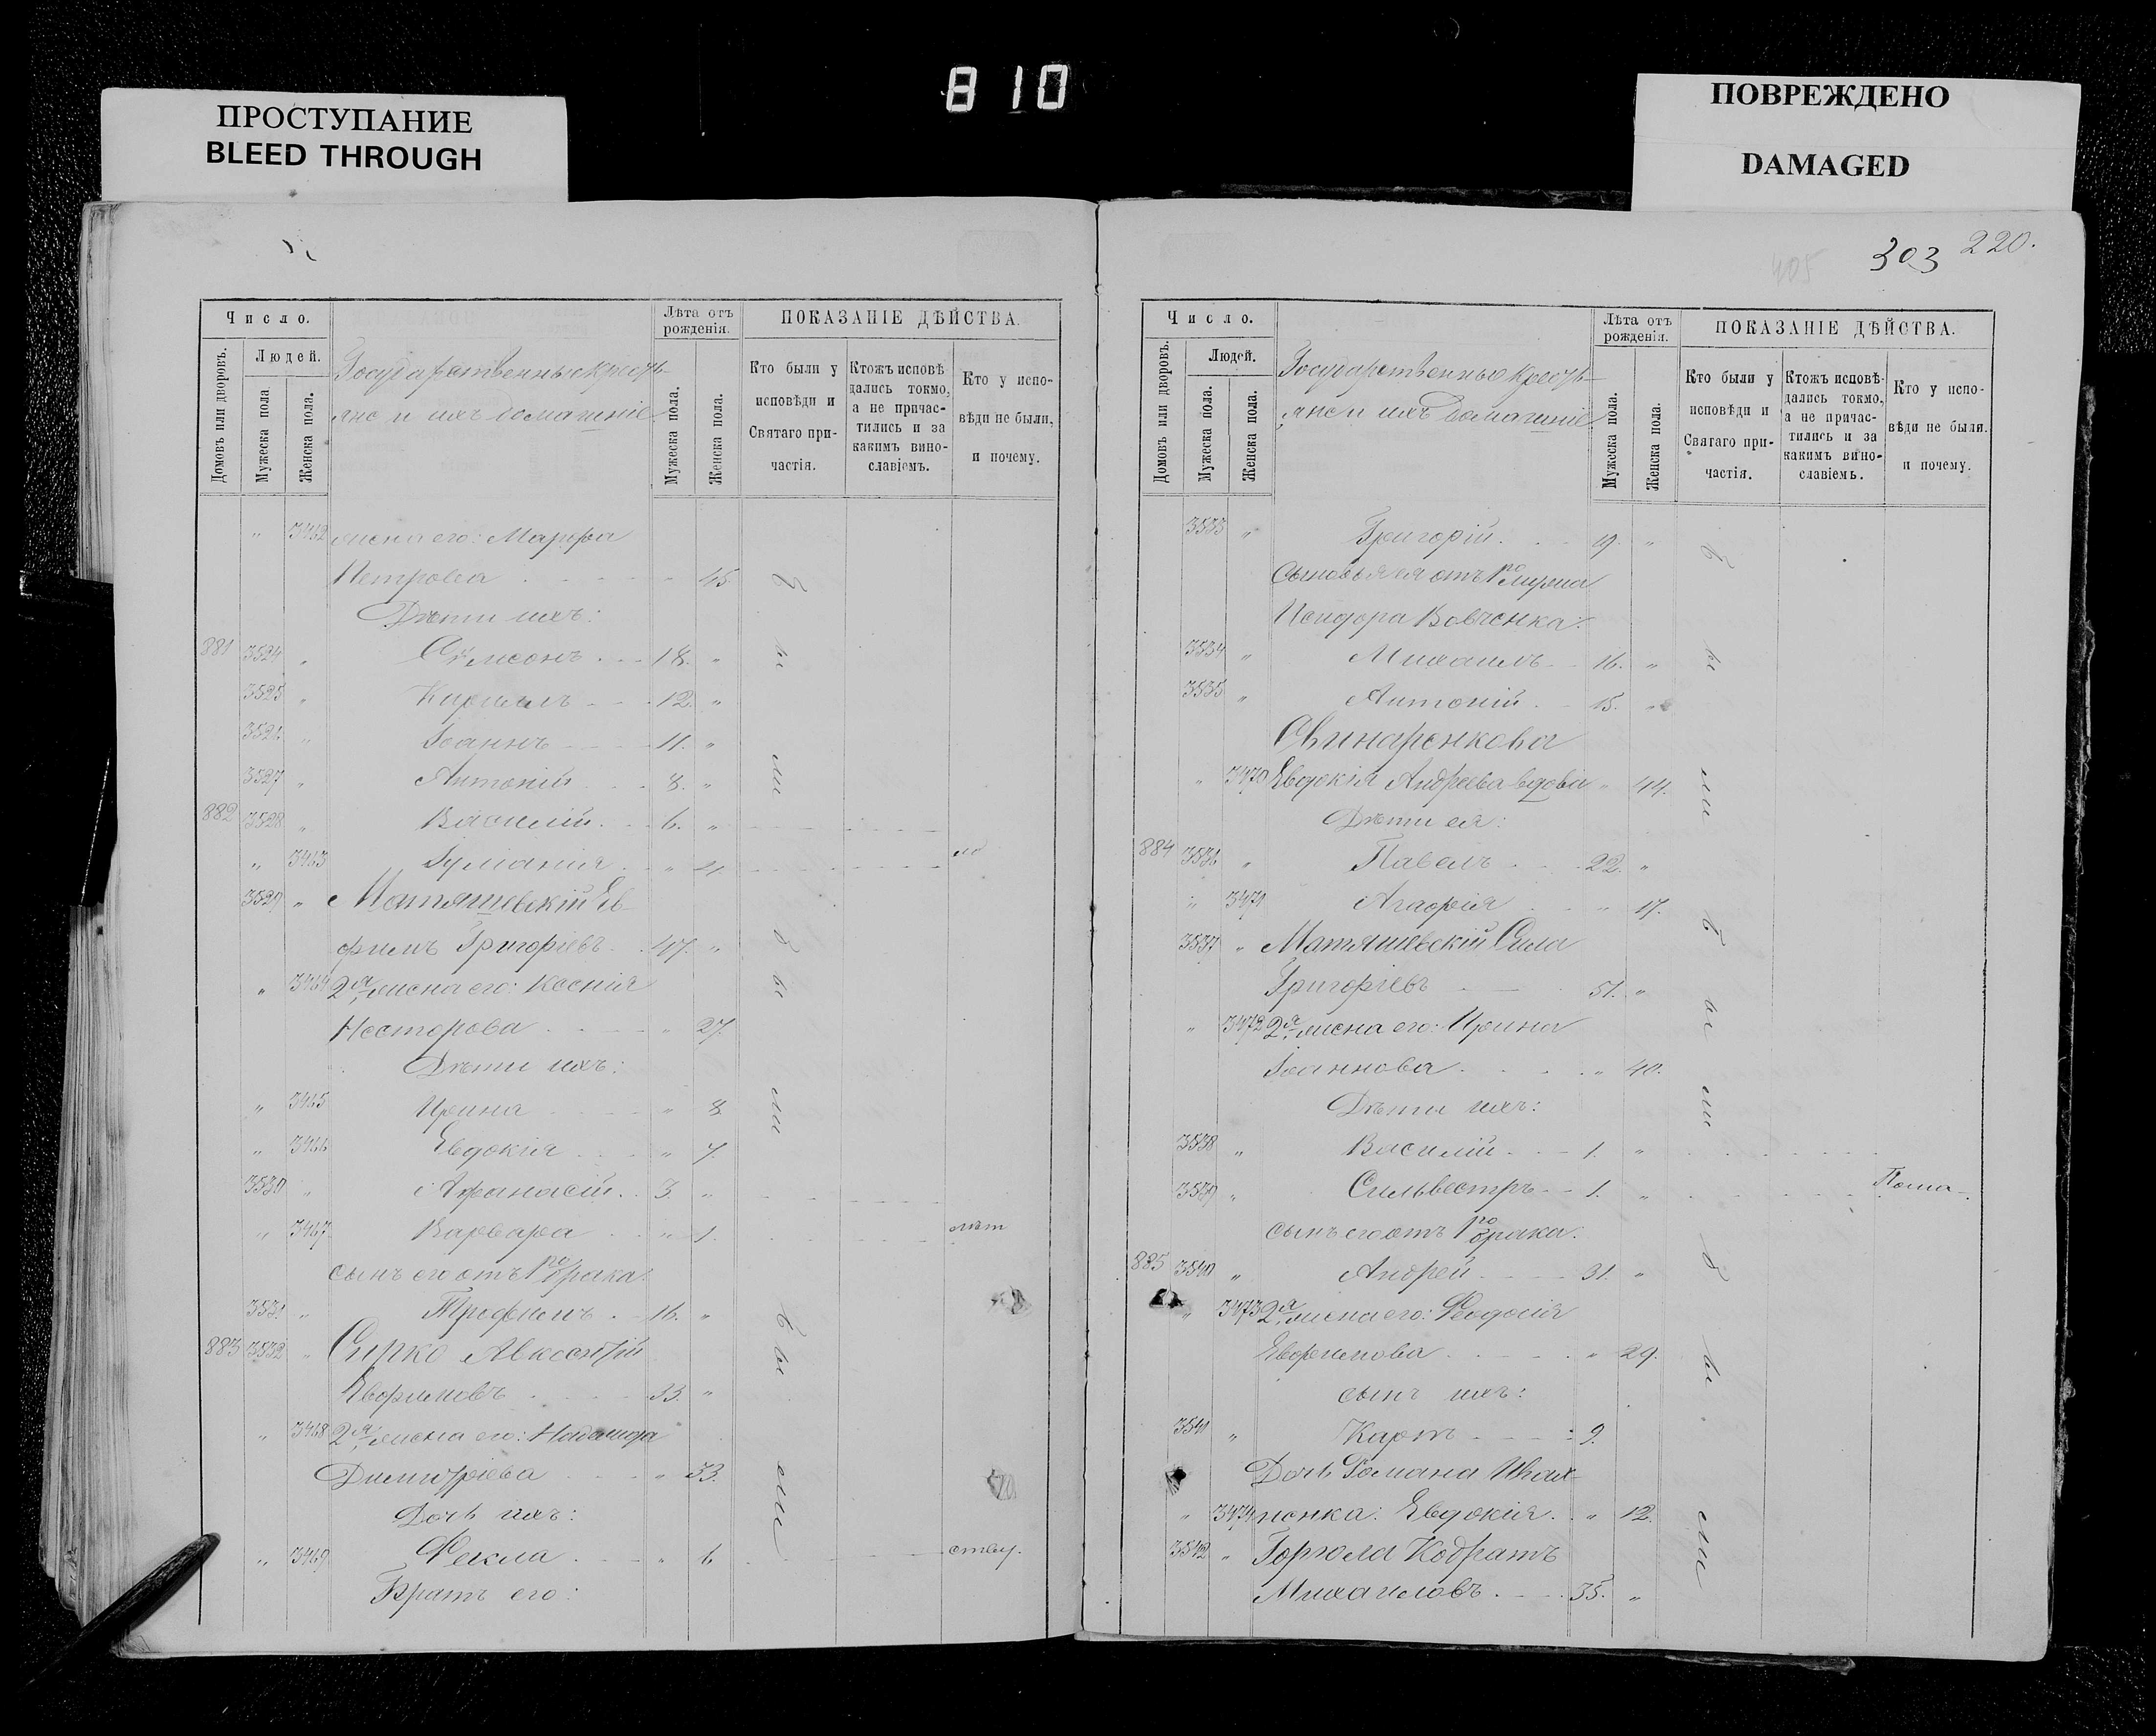 810
ПРОСТУПАНИЕ
BLEED THROUGH
ПОВРЕЖДЕНО
DAMAGED
Число.
Людей.
Домовъ или дворовъ.
Мужеска пола
Женска пола.
Государственные кресть-
яне и ихъ домашніе
Лѣта отъ
рожденія.
Мужеска пола.
Женска пола.
ПОКАЗАНІЕ ДѢЙСТВА.
Кто были у
исповѣди и
Святаго при-
частія.
Ктожъ исповѣ
дались токмо,
а не причас-
тились и за
какимъ вино-
славіемъ.
Кто у испо-
вѣди не были,
и почему.
" 3462 жена его: Марѳа
Петрова 45
Дѣти ихъ:
881 3524 " Сѵмеонъ 18. "
3525 " Кириллъ 12. "
3526 " Іоаннъ 11. "
3527 " Антоній 8. "
882 3528 " Василій 6. "
" 3463 Іуліанія " 4. ло
3529 " Матяшевскій Ев-
фимъ Григоріевъ 47. "
" 3464 2я жена его: Ксенія
Несторова " 27.
Дѣти ихъ:
" 3465 Ирина " 8
" 3466 Евдокія " 7.
3530 " Афанасій 3. "
" 3467 Варвара " 1. лѣт
сынъ его отъ 1го брака:
3531 " Трофимъ 16. "
883 3532 " Сирко Авксентій
Евфимовъ 33. "
" 3468 2я жена его: Надежда
Димитріева " 33.
Дочь ихъ:
" 3469 Ѳекла " 6 ству.
Братъ его:
были
были
были
303 220.
405
Число.
Людей.
Домовъ или дворовъ.
Мужеска пола.
Женска пола.
Государственные кресть-
яне и ихъ домашніе
Лѣта отъ
рожденія.
Мужеска пола.
Женска пола.
ПОКАЗАНІЕ ДѢЙСТВА.
Кто были у
исповѣди и
Святаго при-
частія.
Ктожъ исповѣ-
дались токмо,
а не причас-
тились и за
какимъ вино-
славіемъ.
Кто у испо-
вѣди не были.
и почему.
3533 " Григорій. 19. "
Сыновья ея отъ 1го мужа
Исидора Вовченка:
3534 " Михаилъ 16. "
3535 " Антоній 15. "
Свинаренкова
" 3470 Евдокія Андреева вдова " 44.
Дѣти ея:
884 3536 " Павелъ 22. "
" 3471 Агафія " 17.
3537 " Матяшевскій Сила
Григоріевъ 51. "
" 3472 2я жена его: Ирина
Іоаннова " 40.
Дѣти ихъ:
3538 " Василій 1. "
3539 " Сильвестръ 1. "
сынъ его отъ 1го брака:
885 3540 " Андрей 31. "
" 3473 2я жена его: Ѳеодосія
Евфимова " 29.
сынъ ихъ:
3541 " Карпъ 9.
Дочь Романа
" 3474 Евдокія " 12.
3542 " Горкола Кодратъ
Михаиловъ 35. "
были
были
были